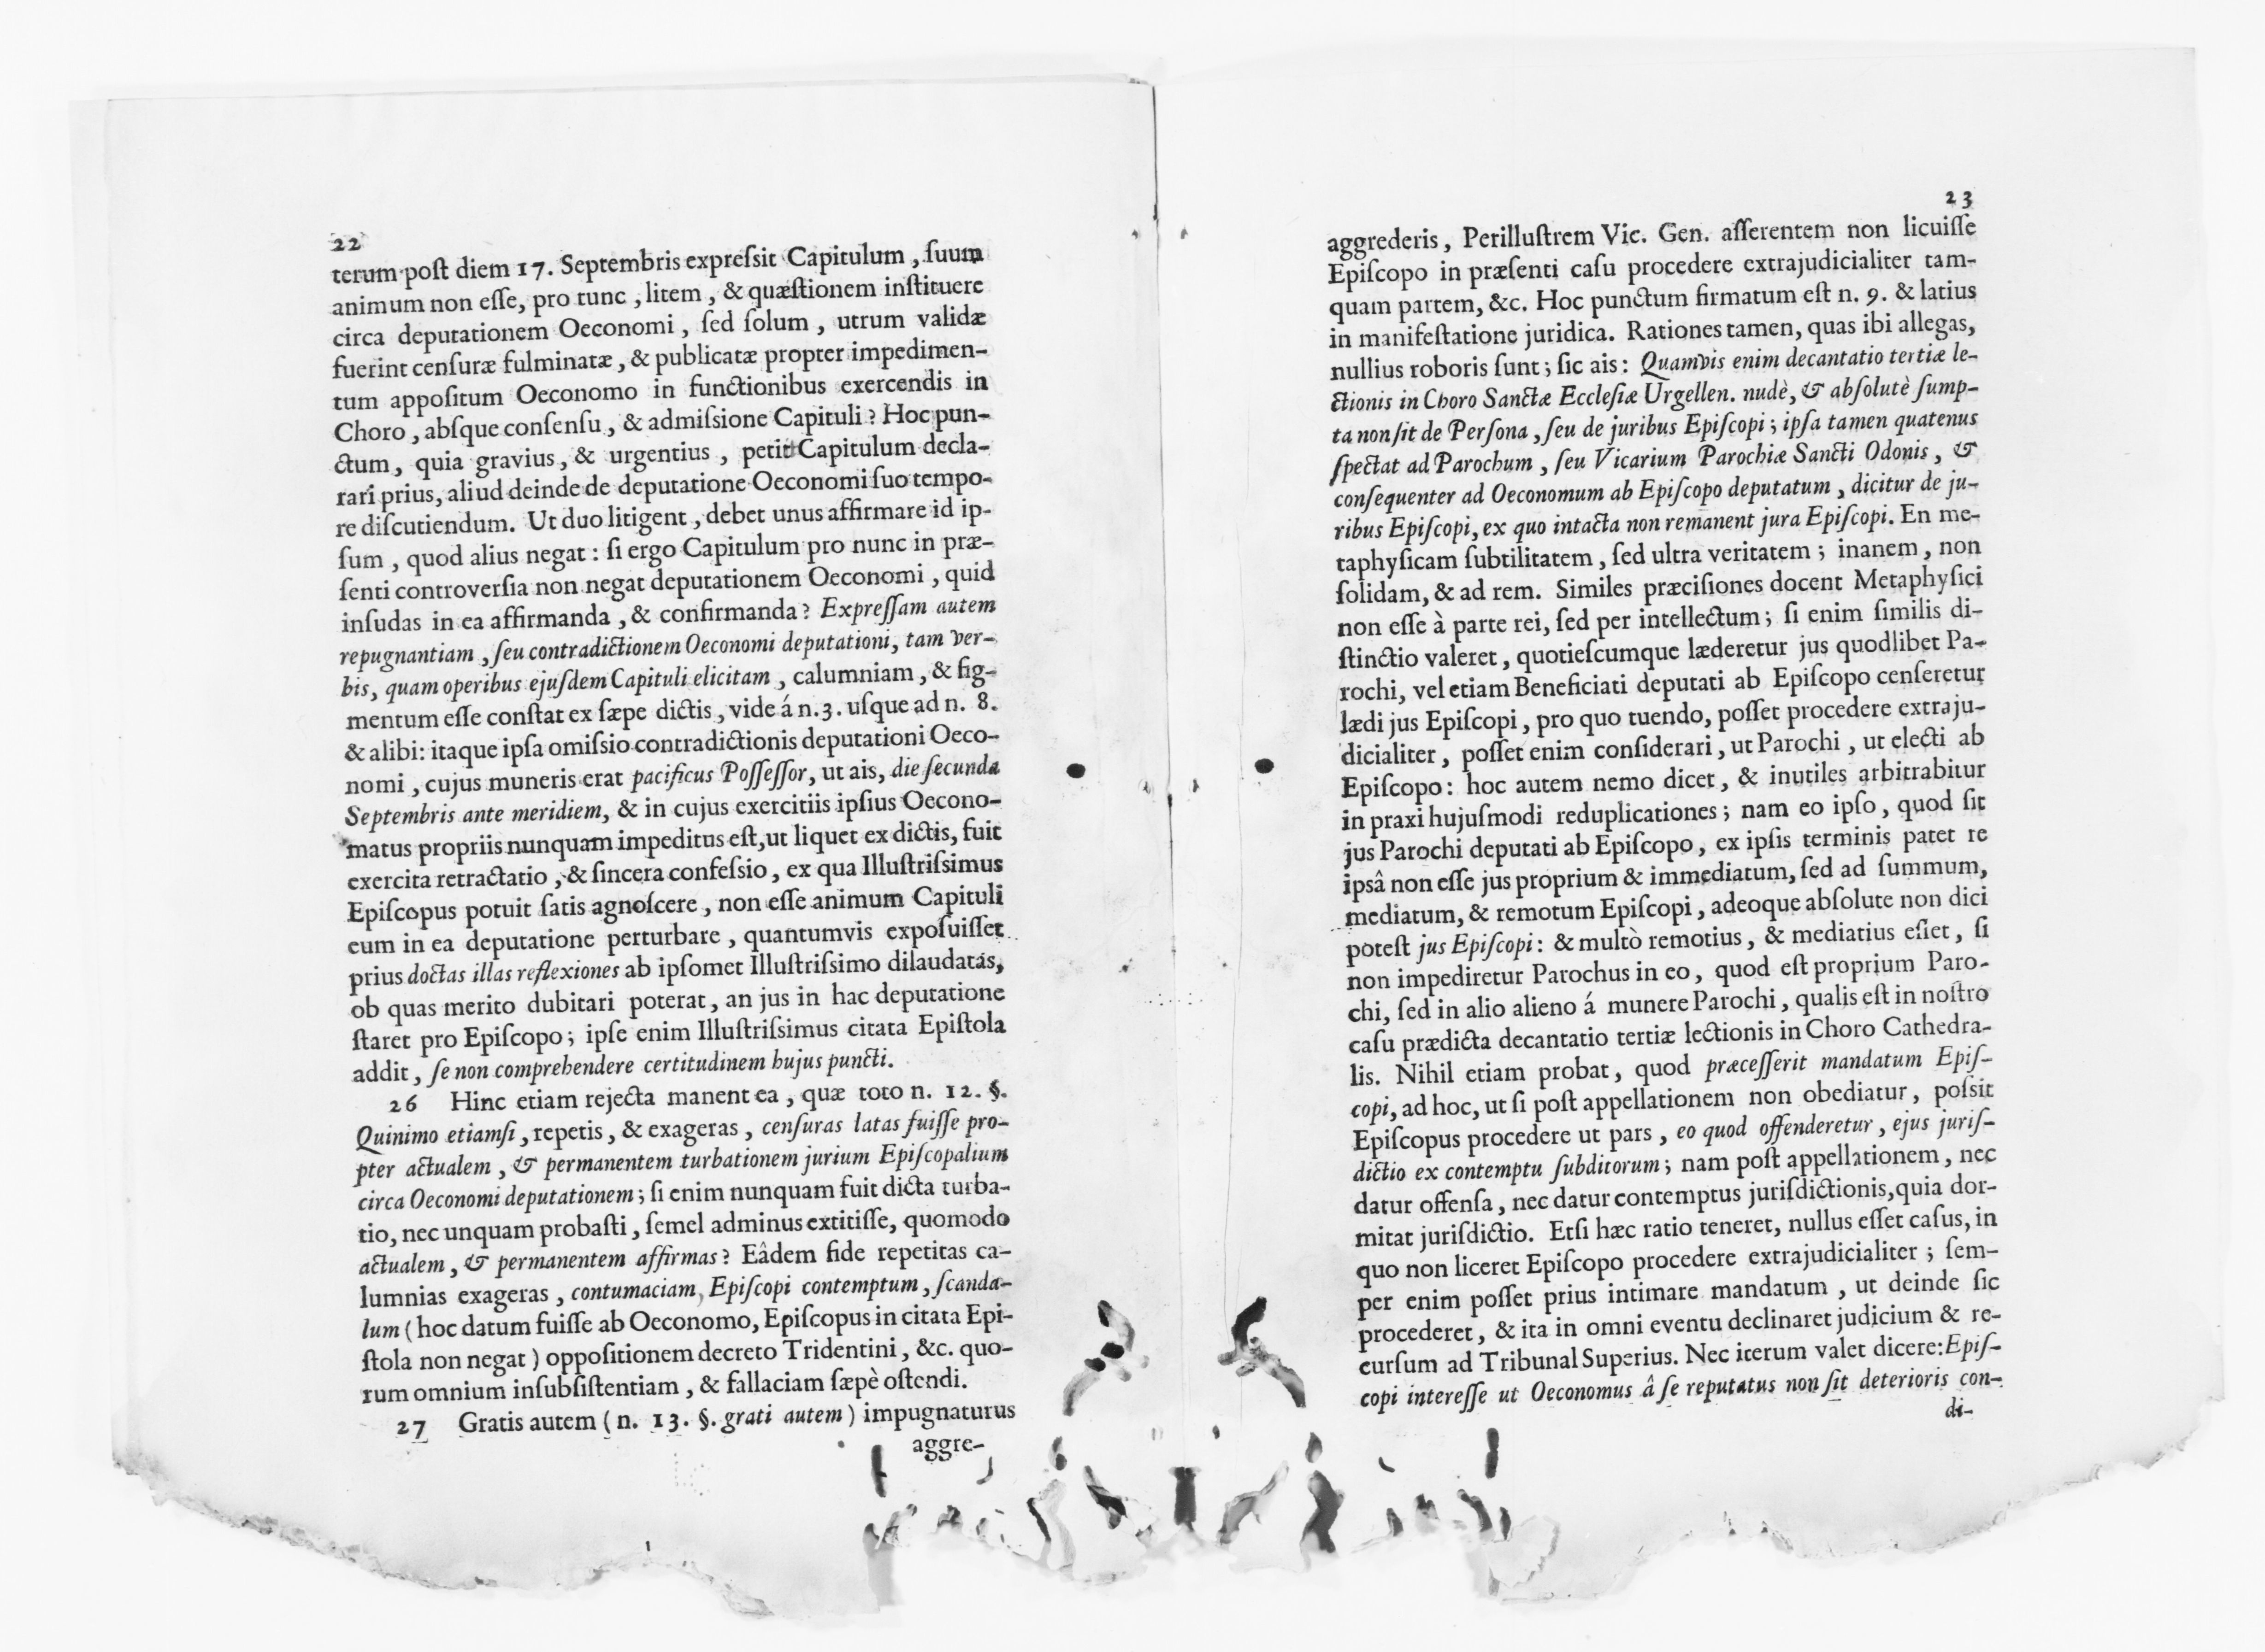 22
terum post diem 17. Septembris expressit Capitulum, suum
animum non esse, pro tunc, litem, & quæstionem instituere
circa deputationem Oeconomi, sed solum, utrum validæ
fuerint censuræ fulminatæ, & publicatæ propter impedimen-
tum appositum Oeconomo in functionibus exercendis in
Choro, absque consensu, & admissione Capituli? Hoc pun-
ctum, quia gravius, & urgentius, petit Capitulum decla-
rari prius, aliud deinde de deputatione Oeconomi suo tempo-
re discutiendum. Ut duo litigent, debet unus affirmare id ip-
sum, quod alius negat: si ergo Capitulum pro nunc in præ-
senti controversia non negat deputationem Oeconomi, quid
insudas in ea affirmanda, & confirmanda? Expressam autem
repugnantiam, seu contradictionem Oeconomi deputationi, tam ver-
bis, quam operibus ejusdem Capituli elicitam, calumniam, & fig-
mentum esse constat ex sæpe dictis, vide á n. 3. usque ad n. 8.
& alibi: itaque ipsa omissio contradictionis deputationi Oeco-
nomi, cujus muneris erat pacificus Possessor, ut ais, die secunda
Septembris ante meridiem, & in cujus exercitiis ipsius Oecono-
matus propriis nunquam impeditus est, ut liquet ex dictis, fuit
exercita retractatio, & sincera confessio, ex qua Illustrissimus
Episcopus potuit satis agnoscere, non esse animum Capituli
eum in ea deputatione perturbare, quantumvis exposuisset
prius doctas illas reflexiones ab ipsomet Illustrissimo dilaudatas,
ob quas merito dubitari poterat, an jus in hac deputatione
staret pro Episcopo; ipse enim Illustrissimus citata Epistola
addit, se non comprehendere certitudinem hujus puncti.
26 Hinc etiam rejecta manent ea, quæ toto n. 12. §.
Quinimo etiamsi, repetis, & exageras, censuras latas fuisse pro-
pter actualem, & permanentem turbationem jurium Episcopalium
circa Oeconomi deputationem; si enim nunquam fuit dicta turba-
tio, nec unquam probasti, semel adminus extitisse, quomodo
actualem, & permanentem affirmas? Eâdem fide repetitas ca-
lumnias exageras, contumaciam, Episcopi contemptum, scanda-
lum (hoc datum fuisse ab Oeconomo, Episcopus in citata Epi-
stola non negat) oppositionem decreto Tridentini, &c. quo-
rum omnium insubsistentiam, & fallaciam sæpè ostendi.
27 Gratis autem (n. 13. §. grati autem) impugnaturus
aggre-
23
aggrederis, Perillustrem Vic. Gen. asserentem non licuisse
Episcopo in præsenti casu procedere extrajudicialiter tam-
quam partem, &c. Hoc punctum firmatum est n. 9. & latius
in manifestatione juridica. Rationes tamen, quas ibi allegas,
nullius roboris sunt; sic ais: Quamvis enim decantatio tertiæ le-
ctionis in Choro Sanctæ Ecclesiæ Urgellen. nudè, & absolutè sump-
ta non sit de Persona, seu de juribus Episcopi; ipsa tamen quatenus
spectat ad Parochum, seu Vicarium Parochiæ Sancti Odonis, &
consequenter ad Oeconomum ab Episcopo deputatum, dicitur de ju-
ribus Episcopi, ex quo intacta non remanent jura Episcopi. En me-
taphysicam subtilitatem, sed ultra veritatem; inanem, non
solidam, & ad rem. Similes præcisiones docent Metaphysici
non esse à parte rei, sed per intellectum; si enim similis di-
stinctio valeret, quotiescumque læderetur jus quodlibet Pa-
rochi, vel etiam Beneficiati deputati ab Episcopo censeretur
lædi jus Episcopi, pro quo tuendo, posset procedere extraju-
dicialiter, posset enim considerari, ut Parochi, ut electi ab
Episcopo: hoc autem nemo dicet, & inutiles arbitrabitur
in praxi hujusmodi reduplicationes; nam eo ipso, quod sit
jus Parochi deputati ab Episcopo, ex ipsis terminis patet re
ipsâ non esse jus proprium & immediatum, sed ad summum,
mediatum, & remotum Episcopi, adeoque absolute non dici
potest jus Episcopi: & multò remotius, & mediatius esset, si
non impediretur Parochus in eo, quod est proprium Paro-
chi, sed in alio alieno á munere Parochi, qualis est in nostro
casu prædicta decantatio tertiæ lectionis in Choro Cathedra-
lis. Nihil etiam probat, quod præcesserit mandatum Epis-
copi, ad hoc, ut si post appellationem non obediatur, possit
Episcopus procedere ut pars, eo quod offenderetur, ejus juris-
dictio ex contemptu subditorum; nam post appellationem, nec
datur offensa, nec datur contemptus jurisdictionis, quia dor-
mitat jurisdictio. Etsi hæc ratio teneret, nullus esset casus, in
quo non liceret Episcopo procedere extrajudicialiter; sem-
per enim posset prius intimare mandatum, ut deinde sic
procederet, & ita in omni eventu declinaret judicium & re-
cursum ad Tribunal Superius. Nec iterum valet dicere: Epis-
copi interesse ut Oeconomus â se reputatus non sit deterioris con-
di-